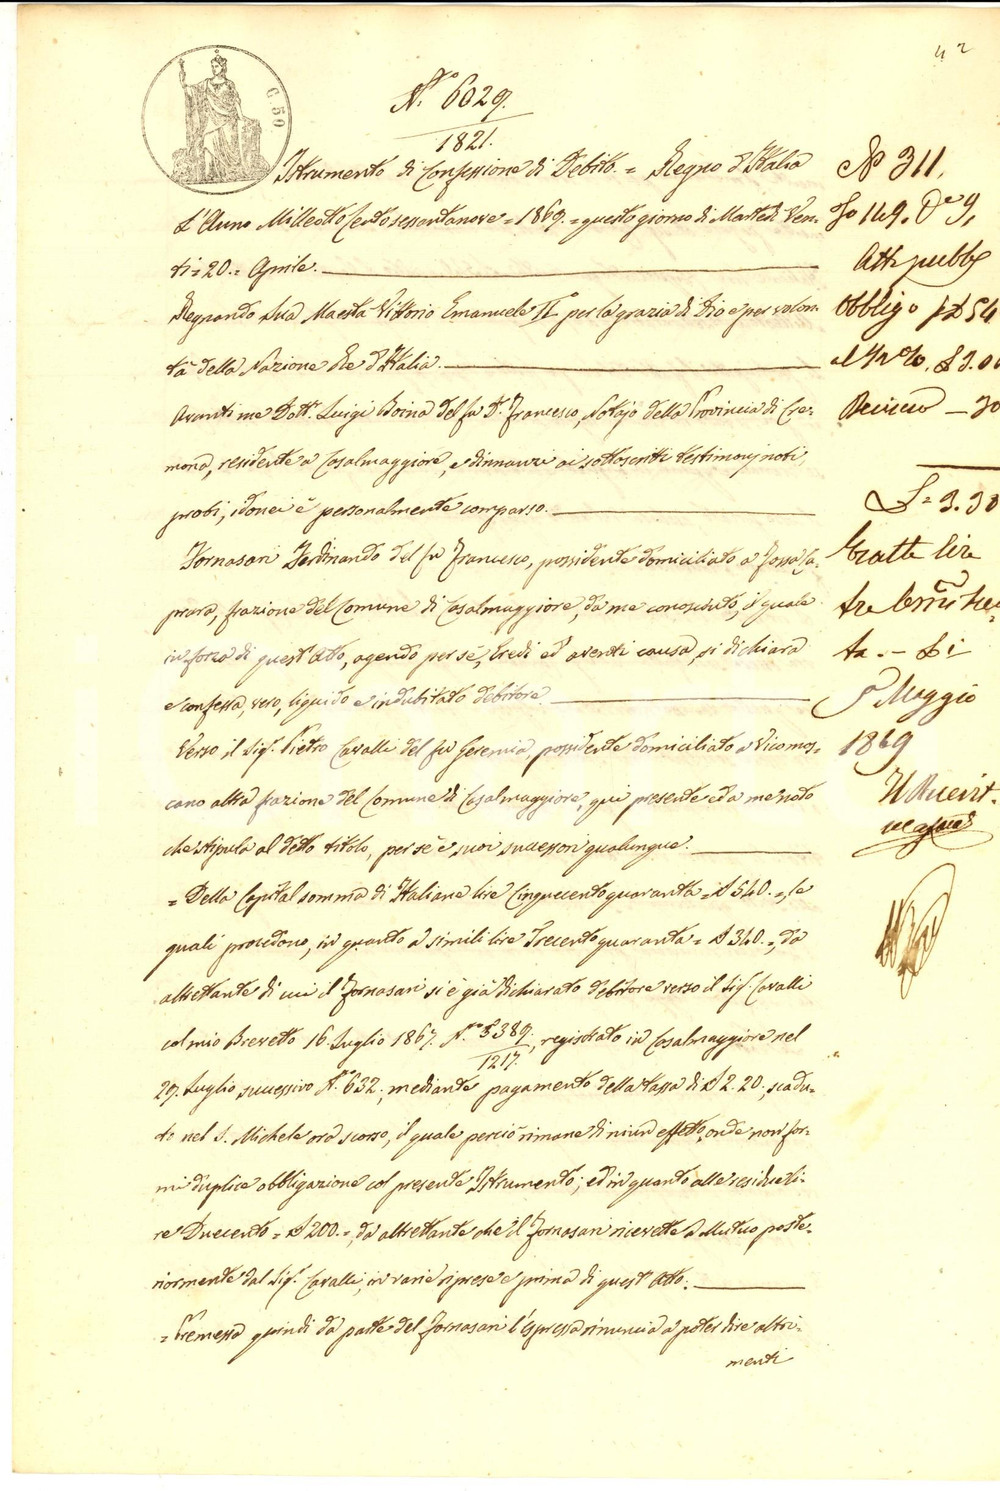 42
C. 50
N.° 6029.
1821.
Istrumento di Confessione di Debito. = Regno d'Italia
L'Anno Milleotto Cento sessantanove = 1869. = questo giorno di Martedì Ven-
ti = 20. = Aprile.
Regnando Sua Maestà Vittorio Emanuele II° per la grazia di Dio e per volon-
tà della Nazione Re d'Italia.
Avanti me Dott.r Luigi Boina del fu D.r Francesco, Notajo della Provincia di Cre-
mona, residente a Casalmaggiore, e dinnanzi ai sottoscritti testimonj noti,
probi, idonei è personalmente comparso.
Fornasari Ferdinando del fu Francesco, possidente domiciliato a Fossa Ca-
prara, frazione del Comune di Casalmaggiore, da me conosciuto, il quale
in forza di quest'Atto, agendo per sé, Eredi ed aventi causa, si dichiara
e confessa, vero, liquido e indubitato debitore
Verso il Sig.r Pietro Cavalli del fu Geremia, possidente domiciliato a Vicomos-
cano altra frazione del Comune di Casalmaggiore, qui presente e da me noto
che stipula al detto titolo, per sé e suoi successori qualunque.
= Della Capital somma di Italiane lire Cinquecento quaranta = £ 540. =, le
quali procedono, in quanto a simili lire Trecento quaranta = £ 340. =, da
altrettante di cui il Fornasari si è già dichiarato debitore verso il Sig.r Cavalli
col mio Brevetto 16. Luglio 1867. N.° 5389./1217., registrato in Casalmaggiore nel
29. Luglio successivo N.° 632., mediante pagamento della tassa di £ 2. 20., scadu-
to nel S. Michele ora scorso, il quale perciò rimane di niun effetto, onde non for-
mi duplice obbligazione col presente Istrumento; ed in quanto alle residue li-
re Duecento = £ 200. =, da altrettante che il Fornasari ricevette a Mutuo poste-
riormente dal Sig.r Cavalli, in varie riprese e prima di quest'Atto.
= Premessa quindi da parte del Fornasari l'espressa rinuncia a poter dire altri-
menti
N° 311.
Fo 149. Vo 9.
Atti pubb
Obbligo p £ 54
al %, £ 3.00
Decimo — 30
£ = 3.30
Esatte lire
tre Cmi tren
ta. —
Maggio
1869
Il Ricevit.